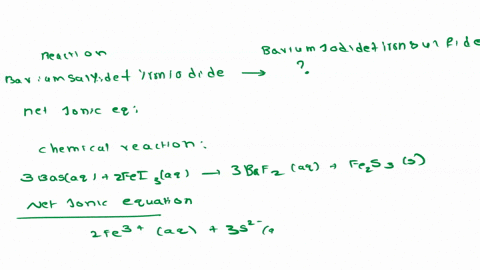 Reaction
Barium Iodidet iron sulfide
Bariumsalfidet iron iodide → ?
net Ionic eq:
chemical reaction:
3 Bas(aq) + 2FeI3(aq) → 3 BaF2 (aq) + Fe2S3 (s)
Net Ionic equation
2Fe3+ (aq) + 3S2- (a